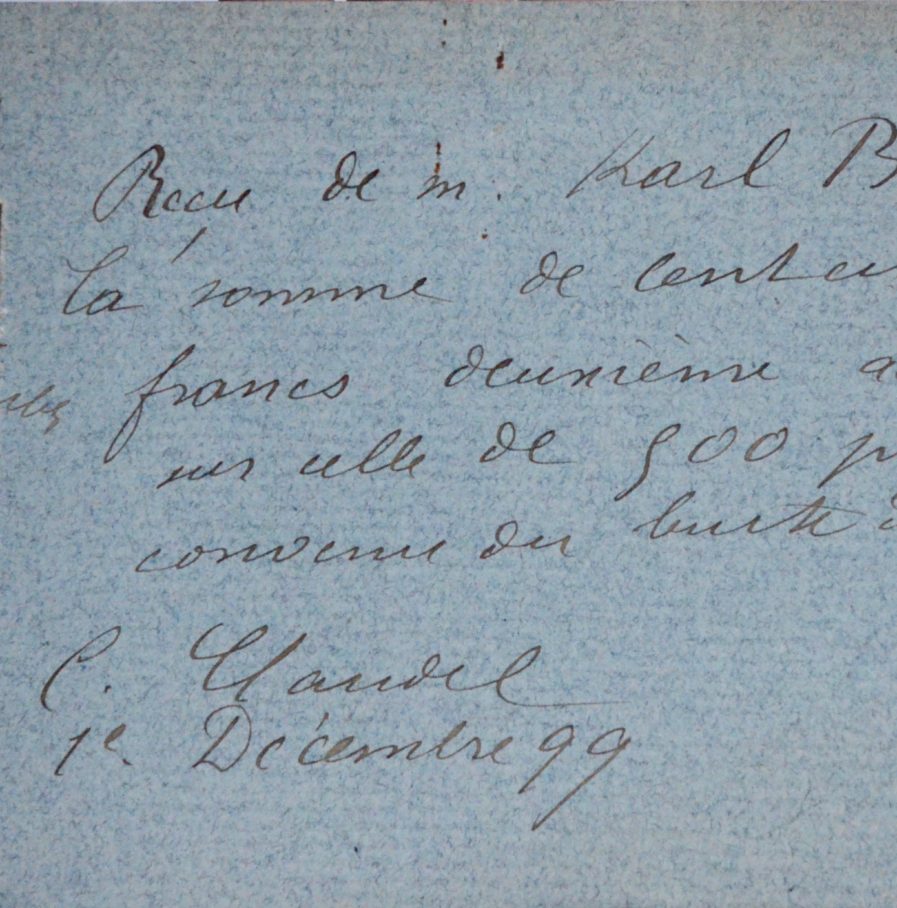 Recu de m. Karl B
la somme de cent ci
francs deuxième a
sur celle de 500 p
convenu du buste d
C. Claudel
1e Décembre 99